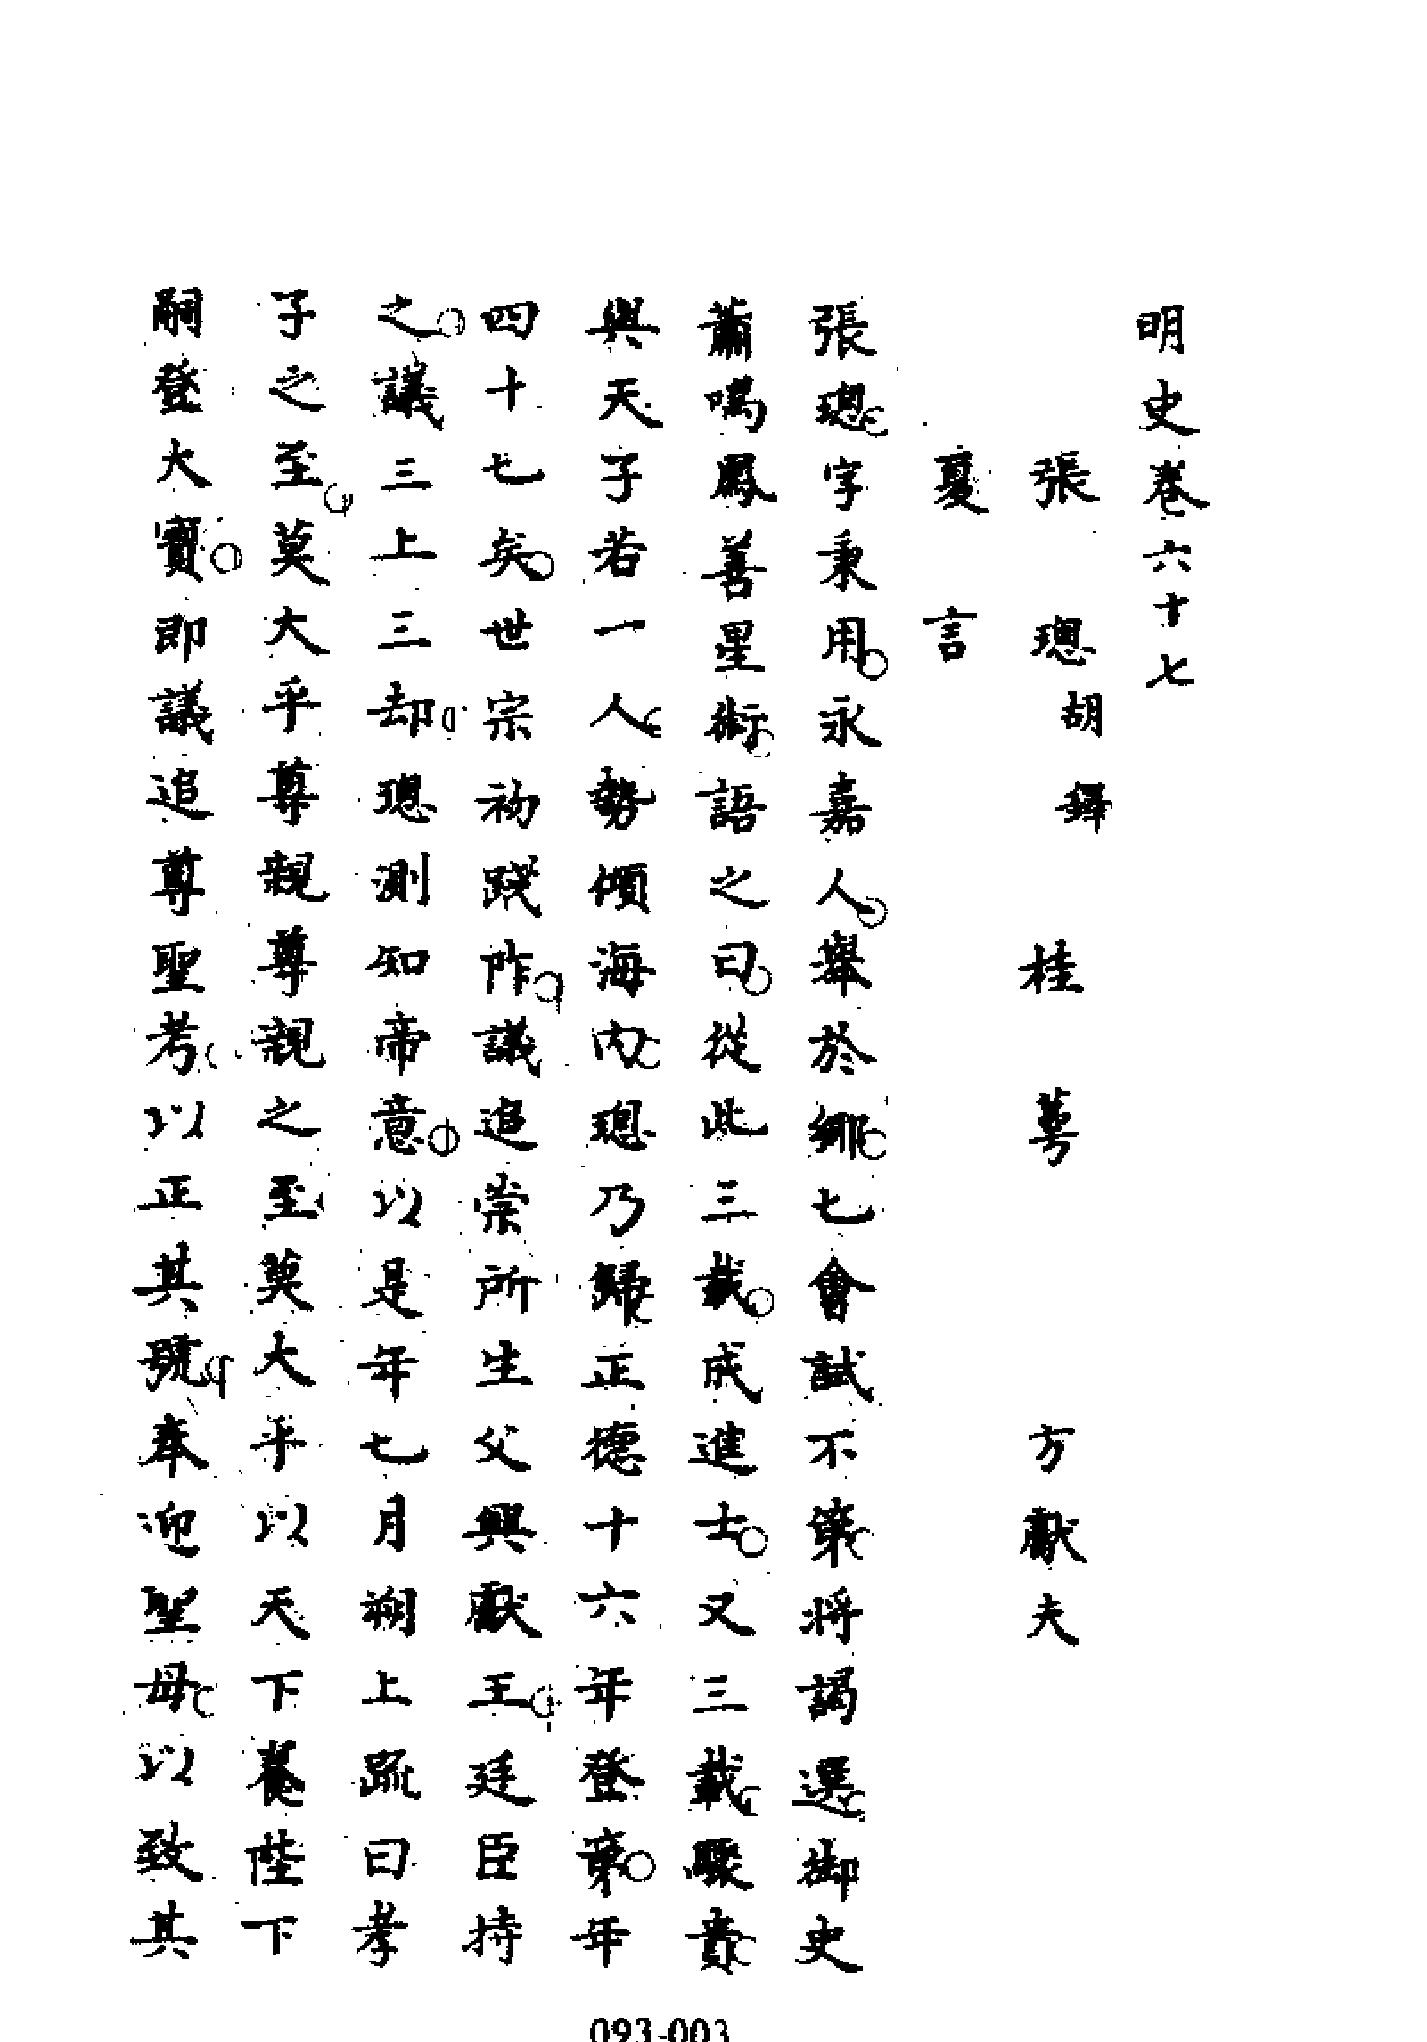 明史卷六十七
張璁 胡鐸 桂萼 方獻夫
夏言
張璁字秉用永嘉人舉於鄉七會試不第將謁選御史
蕭鳴鳳善星術語之曰從此三載成進士又三載驟貴
與天子若一人勢傾海內璁乃歸正德十六年登第年
四十七矣世宗初踐阼議追崇所生父興獻王廷臣持
之議三上三却璁測知帝意以是年七月朔上疏曰孝
子之至莫大乎尊親尊親之至莫大乎以天下養陛下
嗣登大寶即議追尊聖考以正其號奉迎聖母以致其
093-003